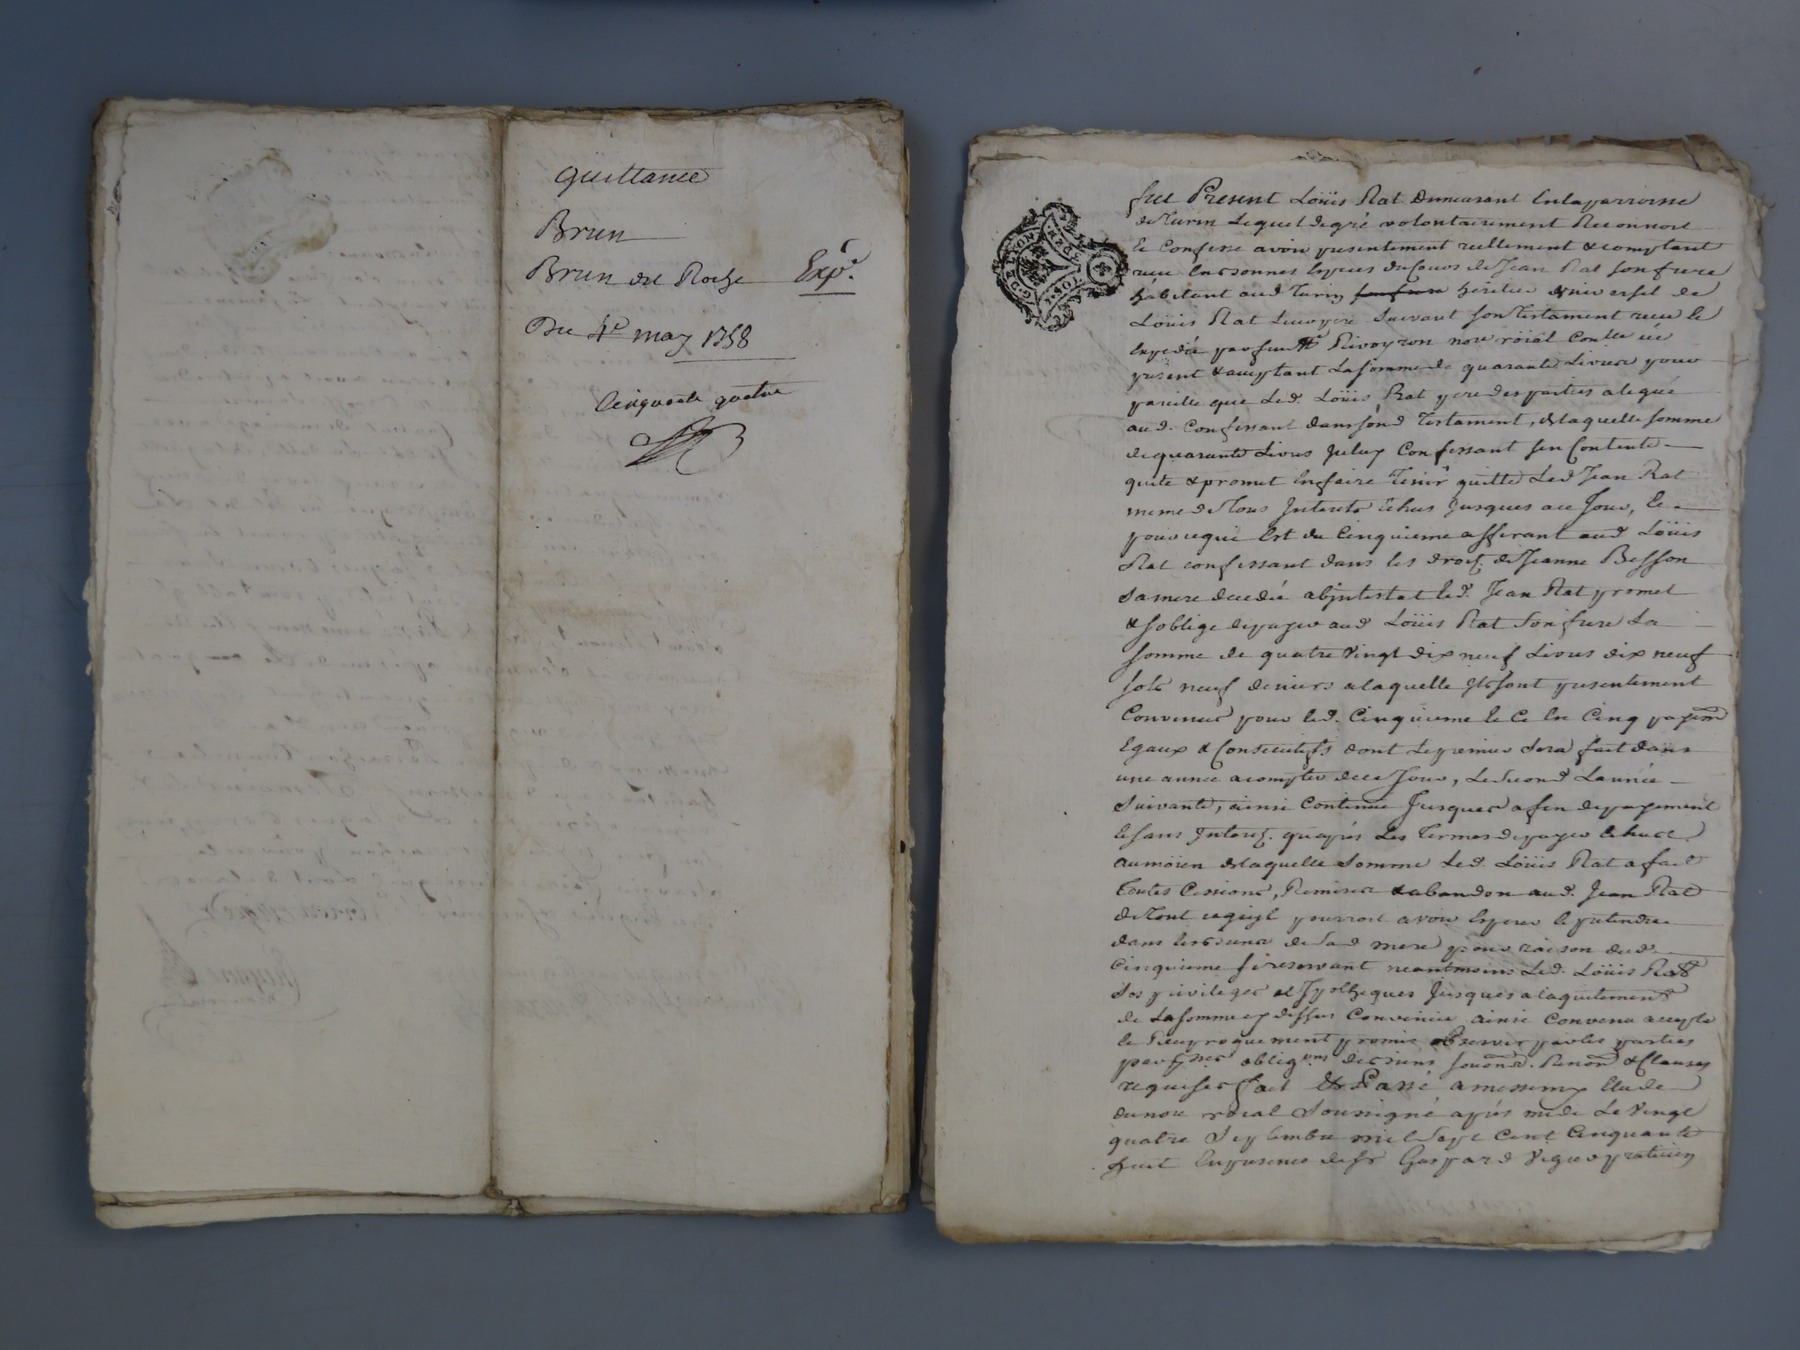 Quittance
Brun
Brun dit Roche Exp.e
Du 4e may 1758
Cinquante quatre
G. DE LYON
DEUX SOLS
fut Present Loüis Rat demeurant en la parroisse
de Turin Lequel de gré volontairement Reconnoit
& Confesse avoir presentement reellement & comptant
receu en bonnes especes du Cours de Jean Rat son frere
habitant aud Turin heritier universel de
Loüis Rat Leur pere suivant son Testament receu &
expedié par feu Me Rivoyron nore röial Contre icé
présent & acceptant La somme de quarante Livres pour
pareille que Led. Loüis Rat pere des parties a legué
aud. Confessant dans sond Testament, de laquelle somme
de quarante Livres Iceluy Confessant sen Contente
quite & promet en faire tenir quitte Led Jean Rat
meme de Tous Interets Echus Jusques a ce Jour, Et
pour ce qui Est du Cinquieme afferant aud Loüis
Rat confessant dans les droits de Jeanne Besson
sa mere decedée abjntestat led. Jean Rat promet
& soblige de payer aud Loüis Rat Son frere La
somme de quatre Vingt dix neuf Livres dix neuf
sols neuf deniers a laquelle Ils sont presentement
Convenus pour led. Cinquieme & Ce En Cinq payem
Egaux & Consecutifs dont Le premier sera fait dans
une année a compter de ce Jour, Le second Lannée
suivante, ainsi Continuer Jusques a fin de payement
& sans Interets. qu'après Les Termes de payer Echus
au moïen de laquelle Somme Led. Loüis Rat a fait
Toutes Cessions, Remises & abandon aud. Jean Rat
de Tout ce quil pourroit avoir Esperer & pretendre
dans les biens de Sad mere pour raison dud
Cinquieme se reservant neantmoins Led. Loüis Rat
Ses privileges et Hypotheques Jusques a laquitement
de La somme cy dessus Convenüe ainsi Convenu accepté
& Reciproquement promis observer par les parties
par oblig.ons de biens & Clauses
requises fait & Passé a messimy Etude
du nore röial Soussigné après midi Le Vingt
quatre Septembre mil Sept Cent Cinquante
huit En presence de Sr Gaspard praticien